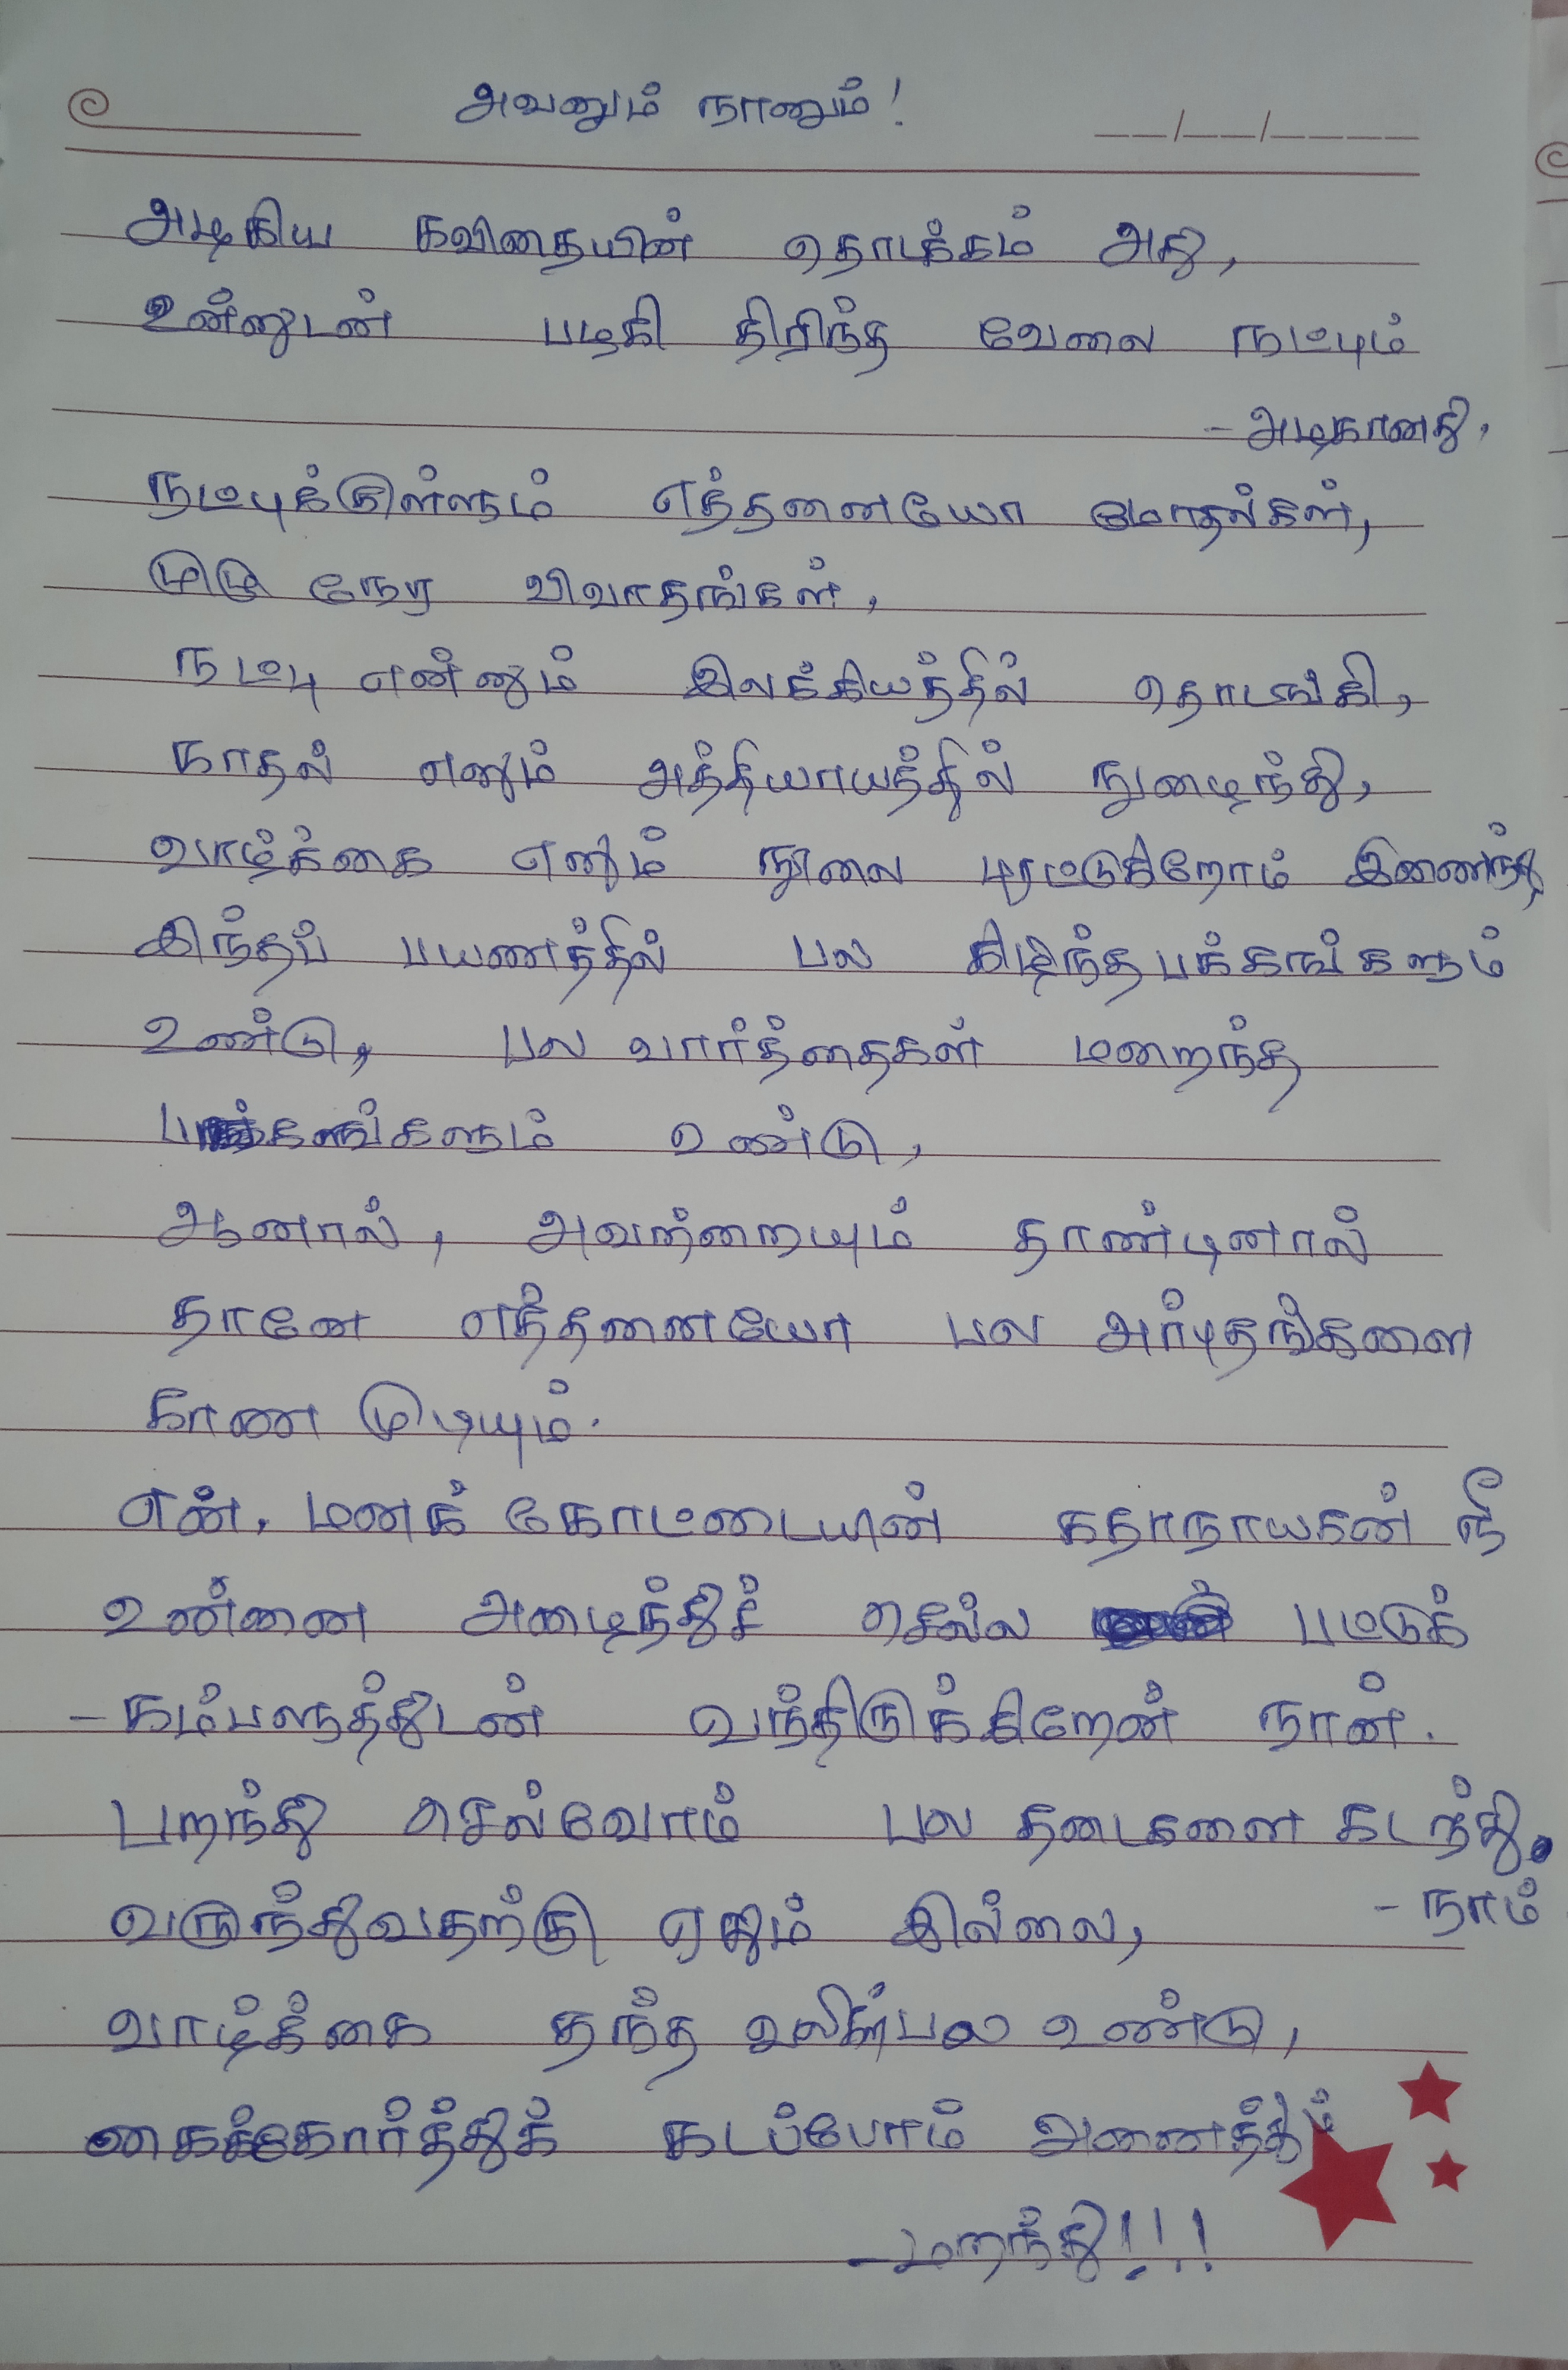 அவனும் நானும்!
அழகிய கவிதையின் தொடக்கம் அது,
உன்னுடன் பழகி திரிந்த வேலை நட்பும்
- அழகானது,
நட்புக்குள்ளும் எத்தனையோ மோதல்கள்,
முழு நேர விவாதங்கள்,
நட்பு என்னும் இலக்கியத்தில் தொடங்கி,
காதல் எனும் அத்தியாயத்தில் நுழைந்து,
வாழ்க்கை எனும் நூலை புரட்டுகிறோம் இணைந்து,
இந்தப் பயணத்தில் பல கிழிந்த பக்கங்களும்
உண்டு, பல வார்த்தைகள் மறைந்த
பக்கங்களும் உண்டு,
ஆனால், அவற்றையும் தாண்டினால்
தானே எத்தனையோ பல அர்புதங்களை
காண முடியும்.
என். மனக் கோட்டையின் கதாநாயகன் நீ
உன்னை அழைந்துச் செல்ல பட்டுக்
- கம்பளத்துடன் வந்திருக்கிறேன் நான்.
பறந்து செல்வோம் பல தடைகளை கடந்து.
- நாம்
வருந்துவதற்கு ஏதும் இல்லை,
வாழ்க்கை தந்த வலிகள் பல உண்டு,
கைக்கோர்த்துக் கடப்போம் அனைத்தும்
- மறந்து!!!